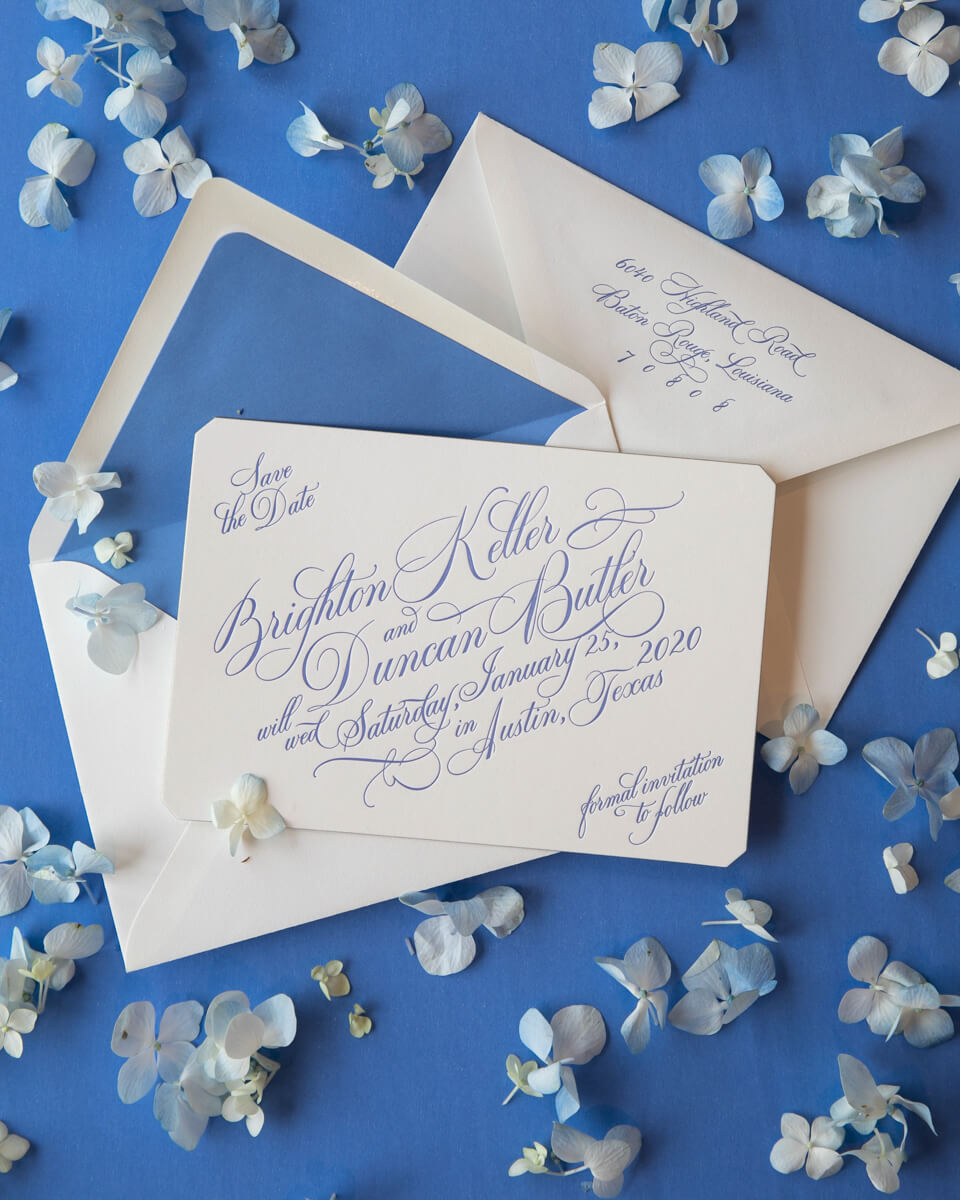 6040 Highland Road
Baton Rouge, Louisiana
70808
Save
the Date
Brighton Keller
and
Duncan Butler
will wed Saturday, January 25, 2020
in Austin, Texas
formal invitation
to follow